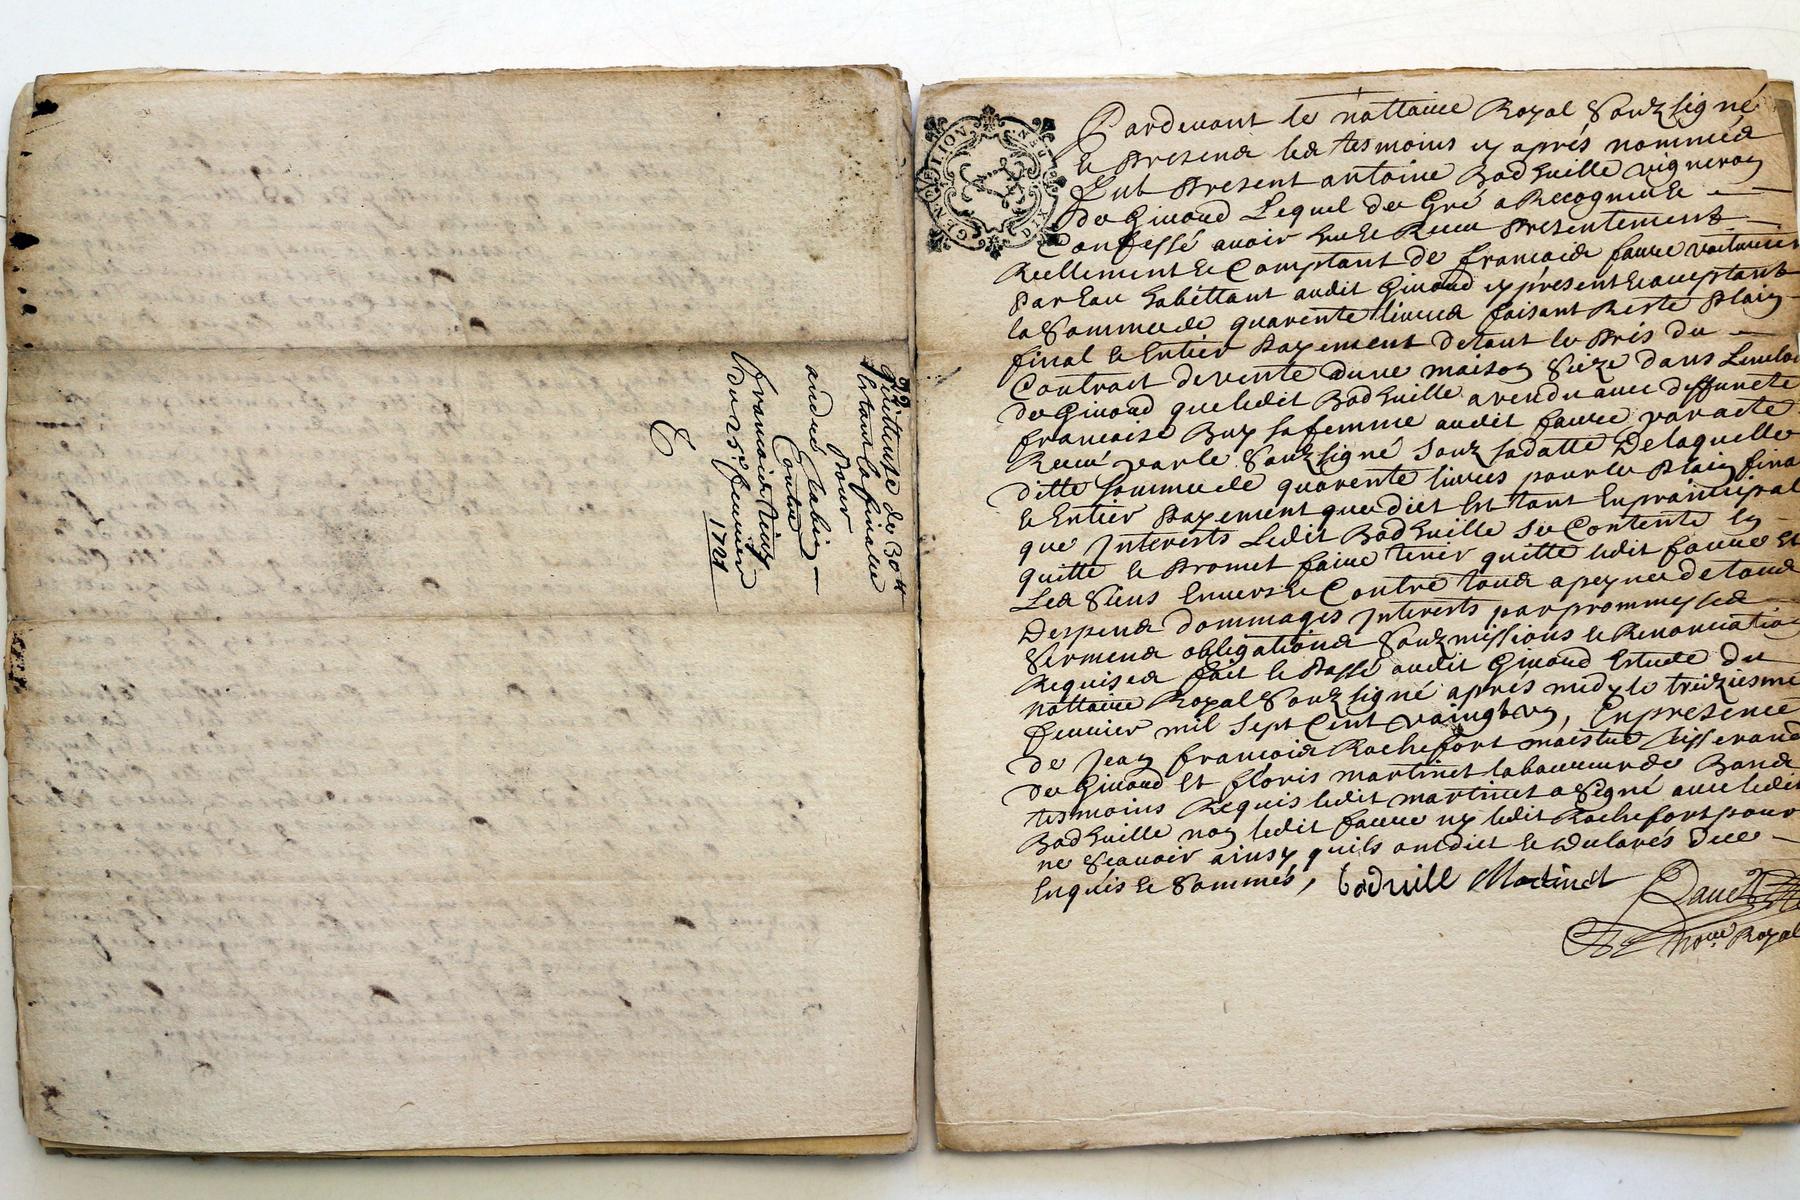 22
Quittence de 30tt
Estant la finalle
Pour
andré
Contre
francois
du 25e feuvrier
1721
GEN DV LION
Pardeuant le nottaire Royal Soubzsigné
Et Presens les tesmoins cy aprés nommés
Fut Present antoine Bodhuille vigneron
de Giuord Lequel de Gré a Recogneu Et
Confessé auoir heu Et Receu Presentement
Reellement Et Comptant de francois faure voiturier
Par Eau habittant audit Giuord cy présent Et acceptant
la Somme de quarente liures faisant Reste Plain
final Et Entier Payement de tout le Pris du
Contract de vente dune maison Size dans
de Giuord que ledit Bodhuille a vendu auec deffuncte
francoise Buy sa femme audit faure par acte
Receu par le Soubzsigné Soubz sa datte De laquelle
ditte Somme de quarente liures pour le Plain fina
Et Entier Payement que dict Est tant En principal
que Interests Ledit Bodhuille Se Contente En
quitte Et Promet faire tenir quitte ledit faure Et
Les Siens Enuers Et Contre tous a peyne de tous
Despens dommages Interests par prommesses
Sermens obligations Soubzmissions Et Renonciation
Requises fait Et Passé audit Giuord Estude du
nottaire Royal Soubzsigné aprés midy le treiziesme
feuurier mil Sept Cent vaingt un, En presence
de Jean francois Rochefort maistre tisserand
de Giuord Et floris martinet laboureur de Bans
tesmoins Requis ledit martinet a Signé auec ledit
Bodhuille non ledit faure ny ledit Rochefort pour
ne Scauoir ainsy quils ont dict Et Declarés de ce
Enquis Et Sommés, boduille Martinet
Royal